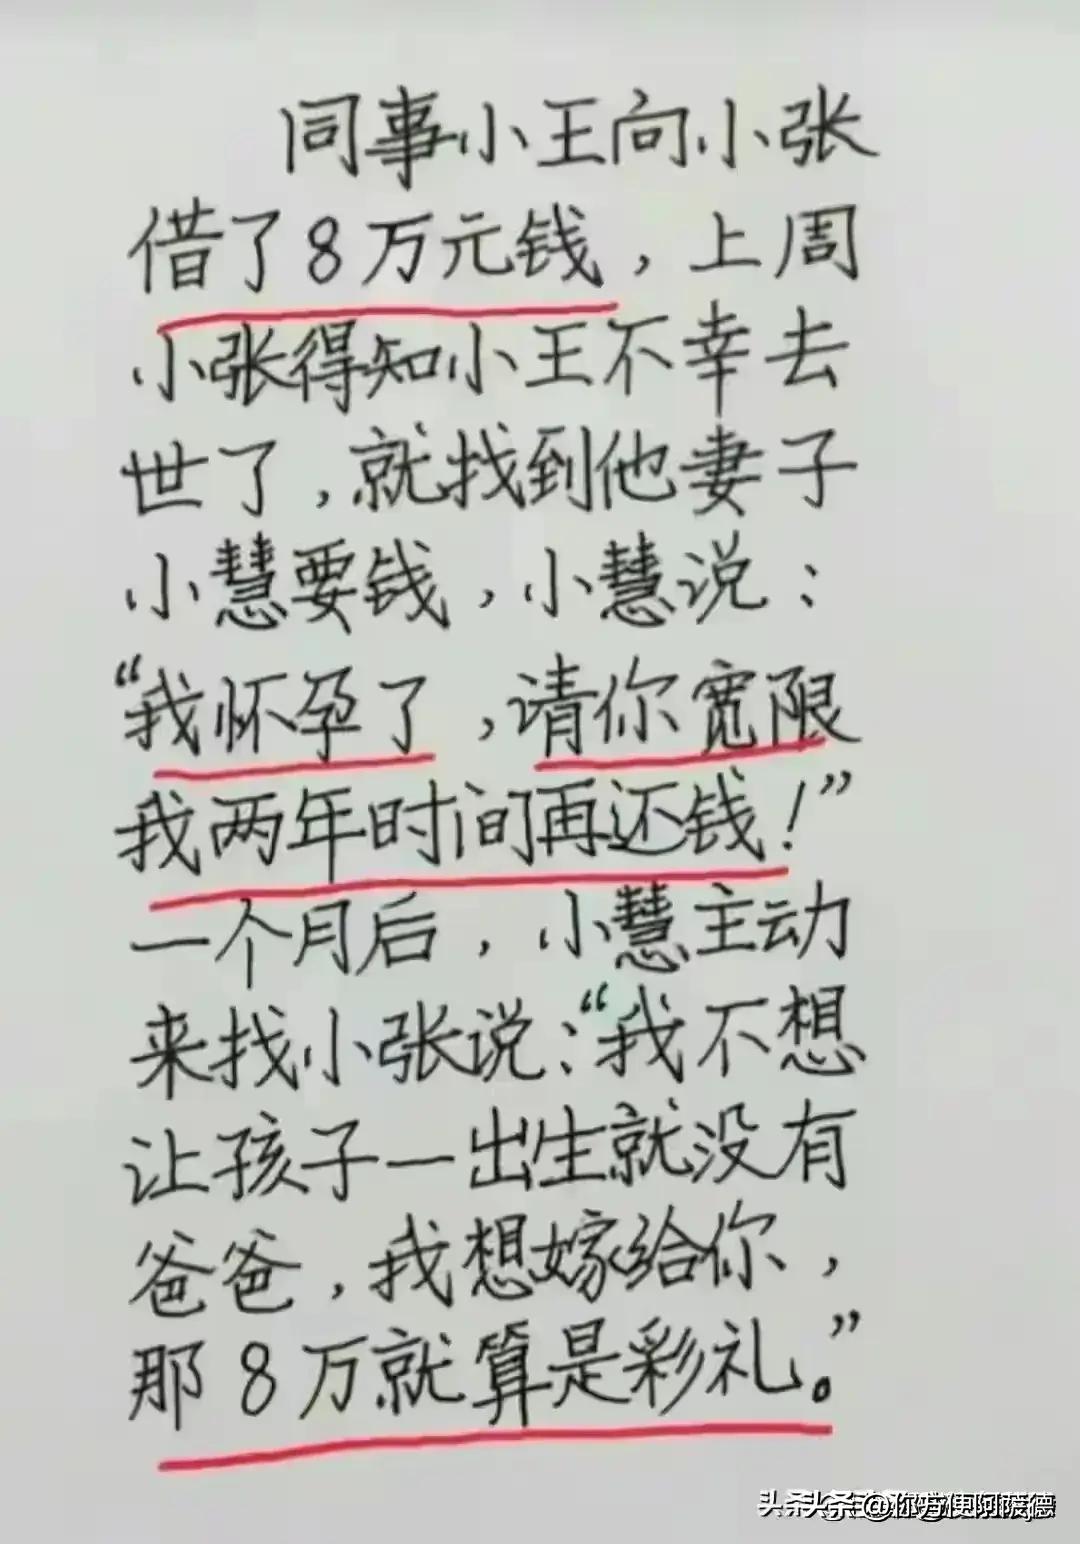 同事小王向小张
借了8万元钱，上周
小张得知小王不幸去
世了，就找到他妻子
小慧要钱，小慧说：
“我怀孕了，请你宽限
我两年时间再还钱！”
一个月后，小慧主动
来找小张说：“我不想
让孩子一出生就没有
爸爸，我想嫁给你，
那8万就算是彩礼。”
头条 @你方便阿萨德